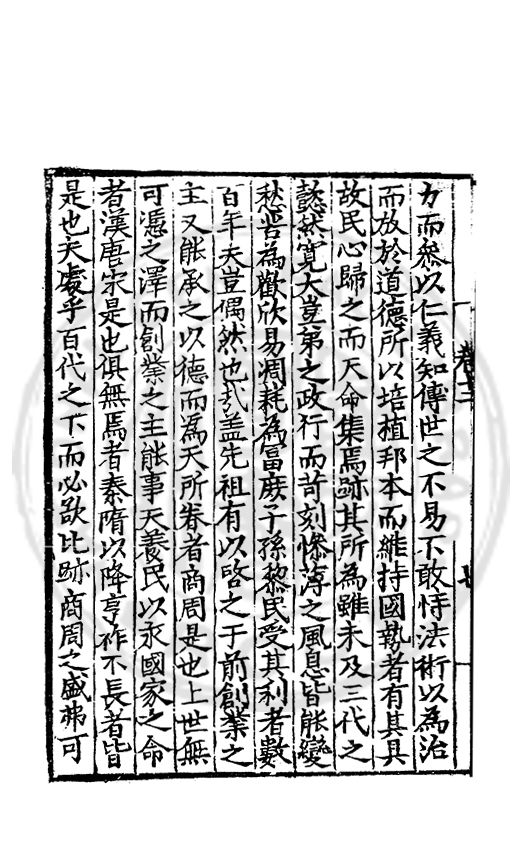 力而叅以仁義知傳世之不易不敢恃法術以為治
而放於道德所以培植邦本而維持國勢者有其具
故民心歸之而天命集焉跡其所為雖未及三代之
懿然寛大豈第之政行而苛刻慘薄之風息皆能變
愁苦為歡欣易凋耗為富庶子孫黎民受其利者數
百年天豈偶然也㢤盖先祖有以啓之于前創業之
主又能承之以德而為天所眷者商周是也上世無
可憑之澤而創業之主能事天養民以永國家之命
者漢唐宋是也俱無焉者秦隋以降享祚不長者皆
是也夫處乎百代之下而必欲比跡商周之盛弗可
卷十二
七